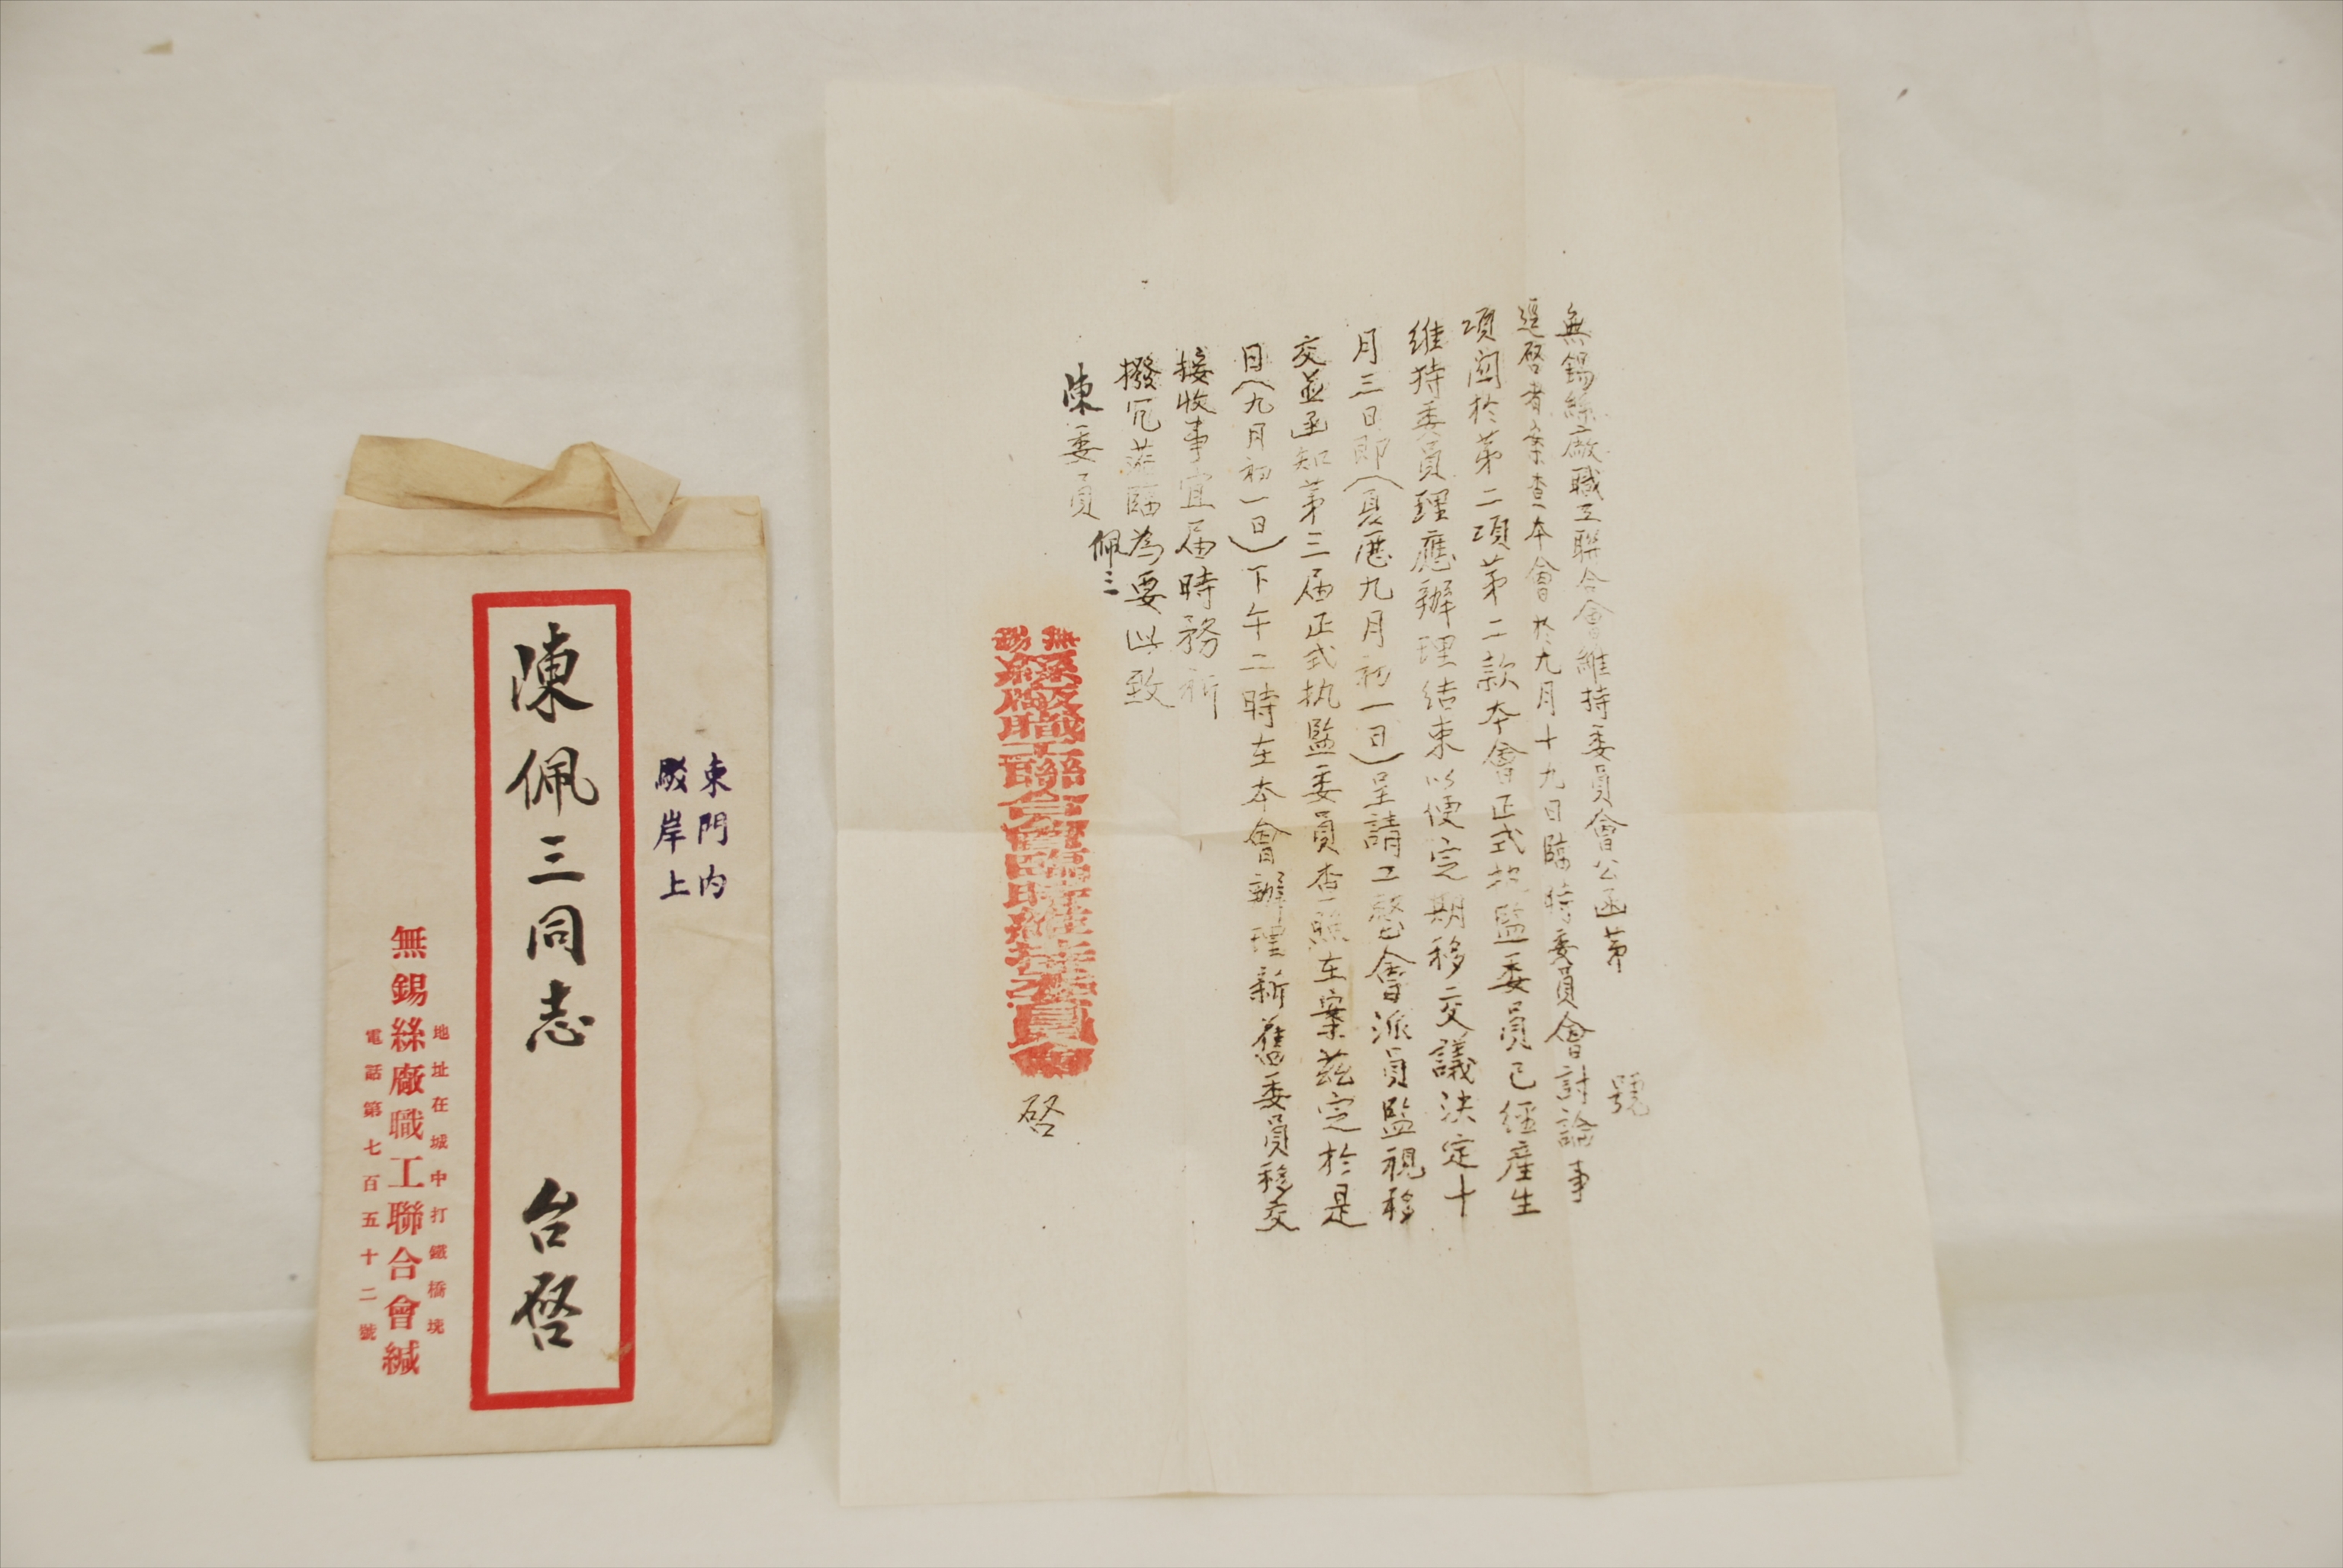 無錫絲廠職工聯合會維持委員會公函第 號
逕啓者案查本會於九月十九日臨時委員會討論事
項関於第二項第二款本會正式执監委員已經產生
維持委員理應辦理結束以便定期移交議決定十
月三日即(夏歷九月初一日)呈請工整會派員監視移
交並函知第三届正式执監委員查照在案茲定於是
日(九月初一日)下午二時在本會辦理新舊委員移交
接收事宜届時務祈
撥冗蒞臨為要此致
陳委員 佩三
無錫
絲廠職工聯合會臨時維持委員會
啓
東門內
駁岸上
陳佩三同志 台啓
地址在城中打鐵橋堍
無錫絲廠職工聯合會緘
電話第七百五十二號